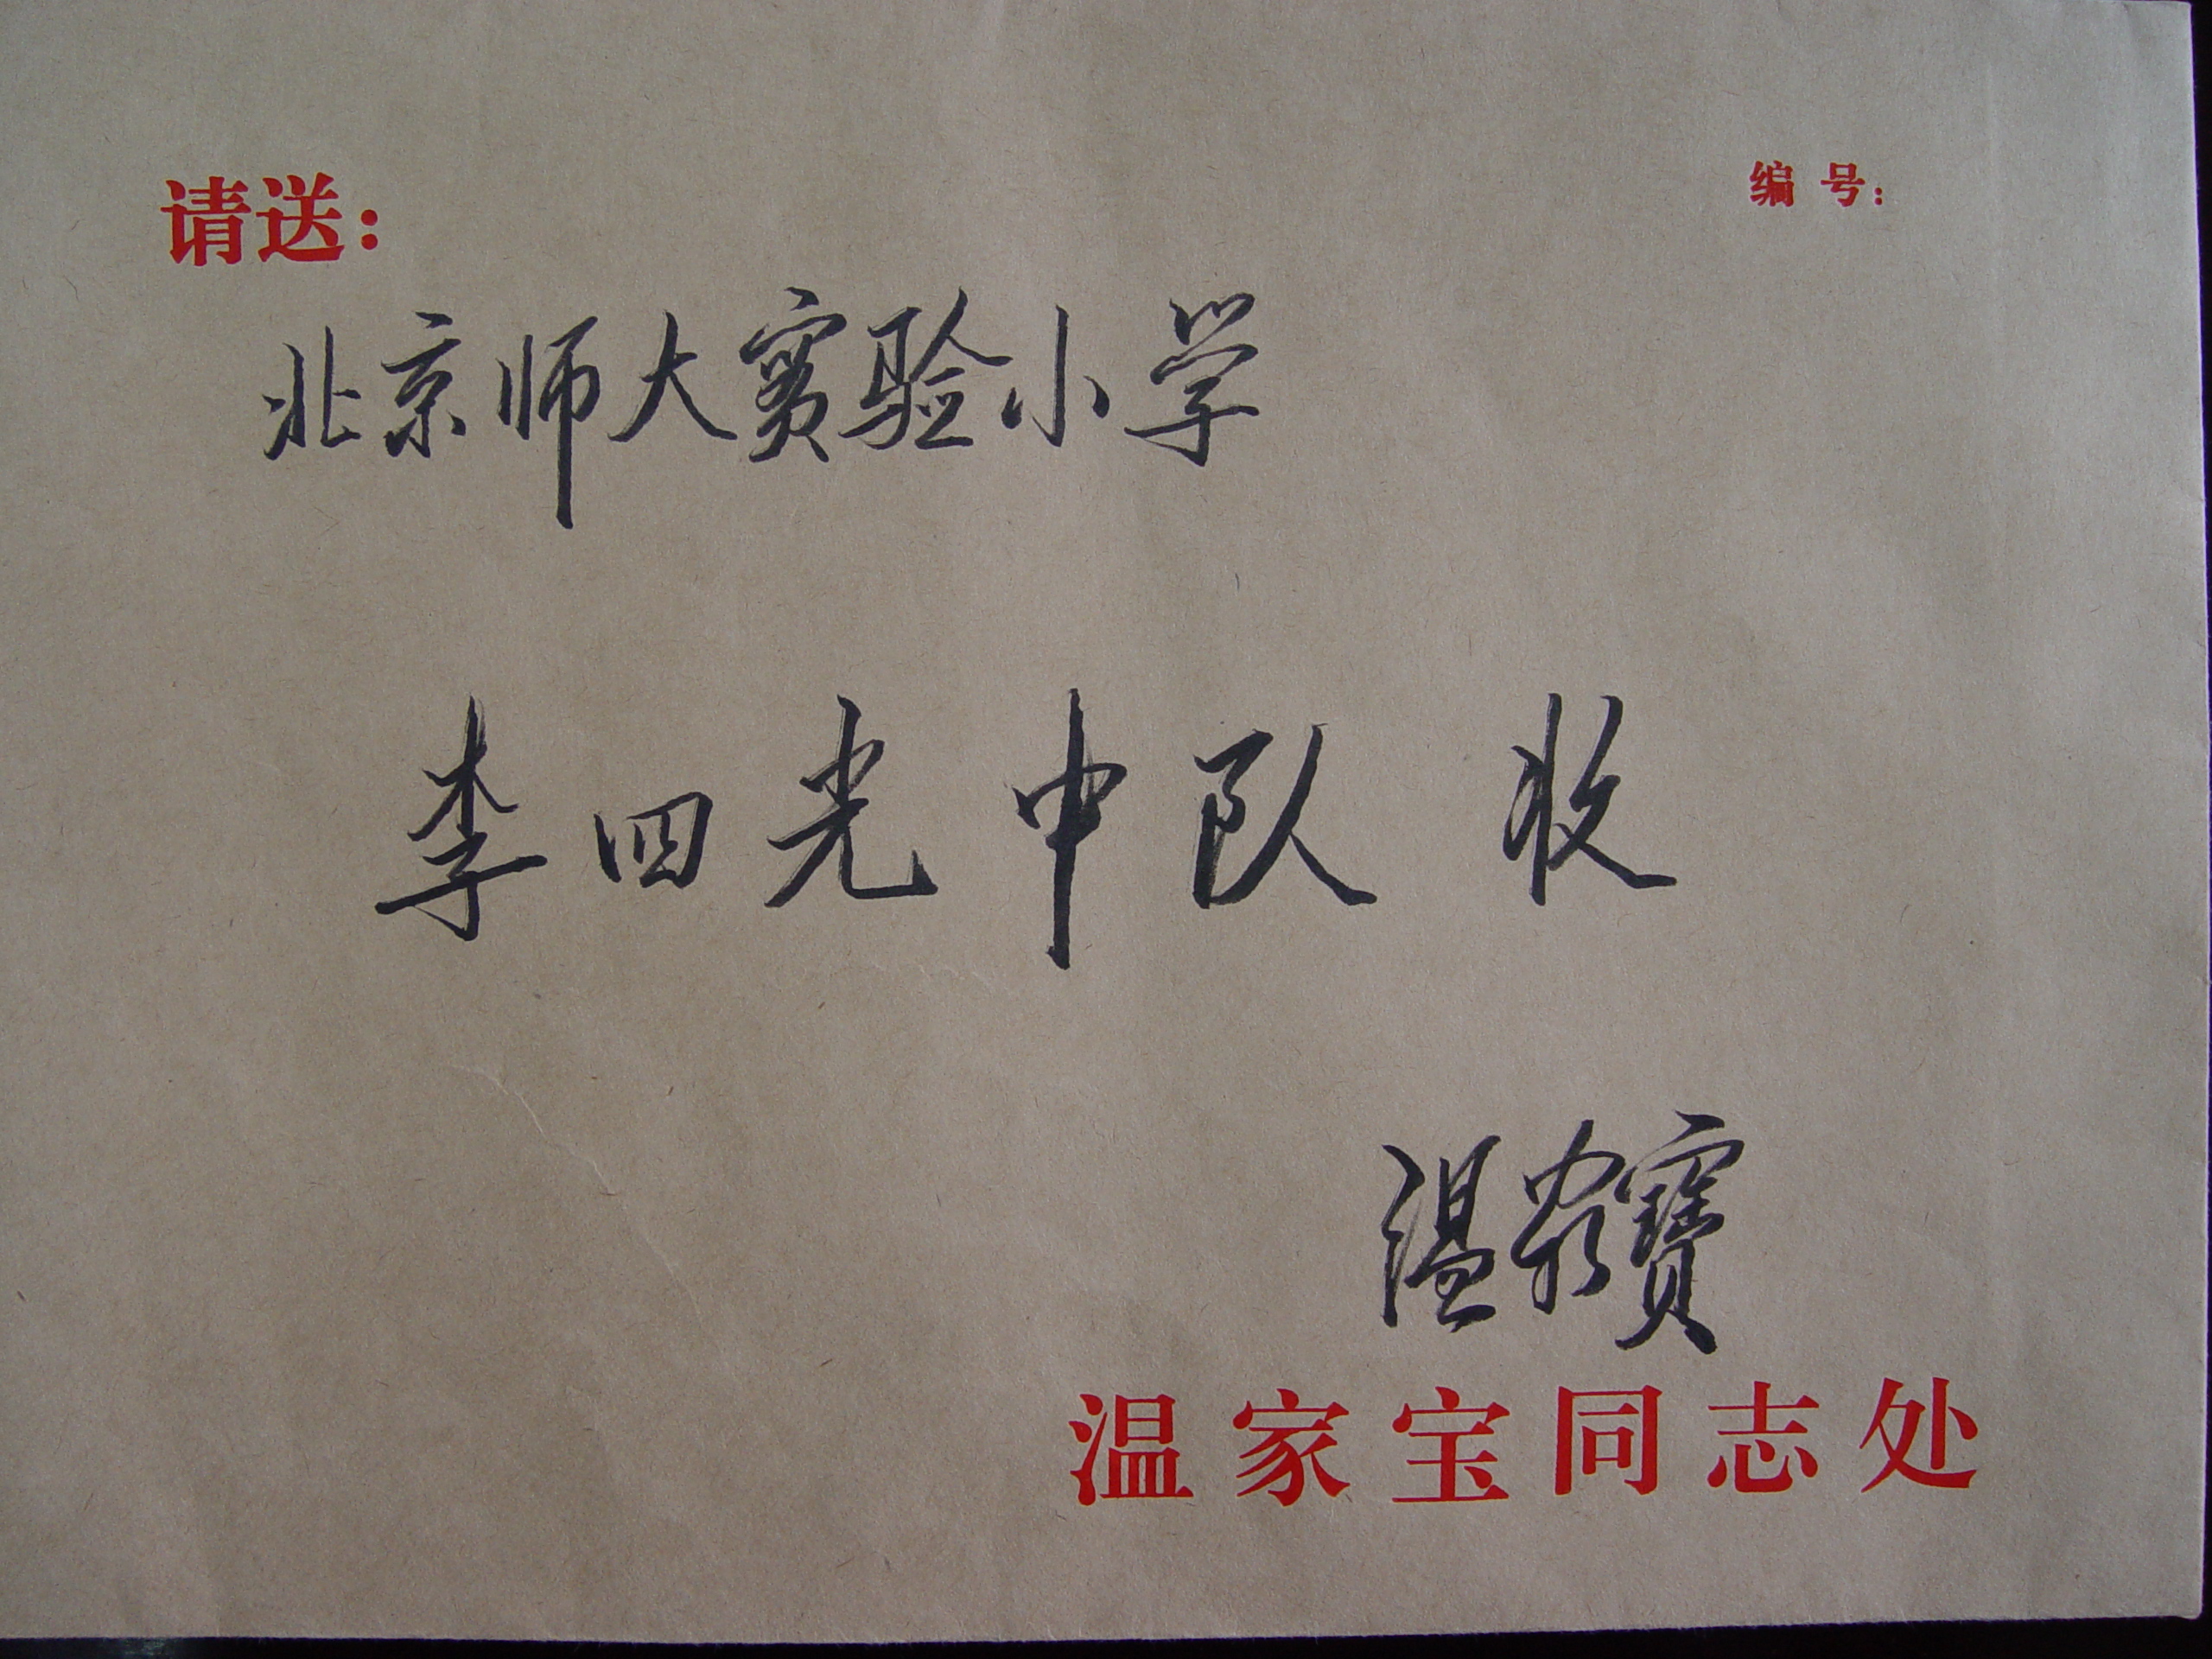 请送：
编号：
北京师大实验小学
李四光中队 收
温家寶
温家宝同志处